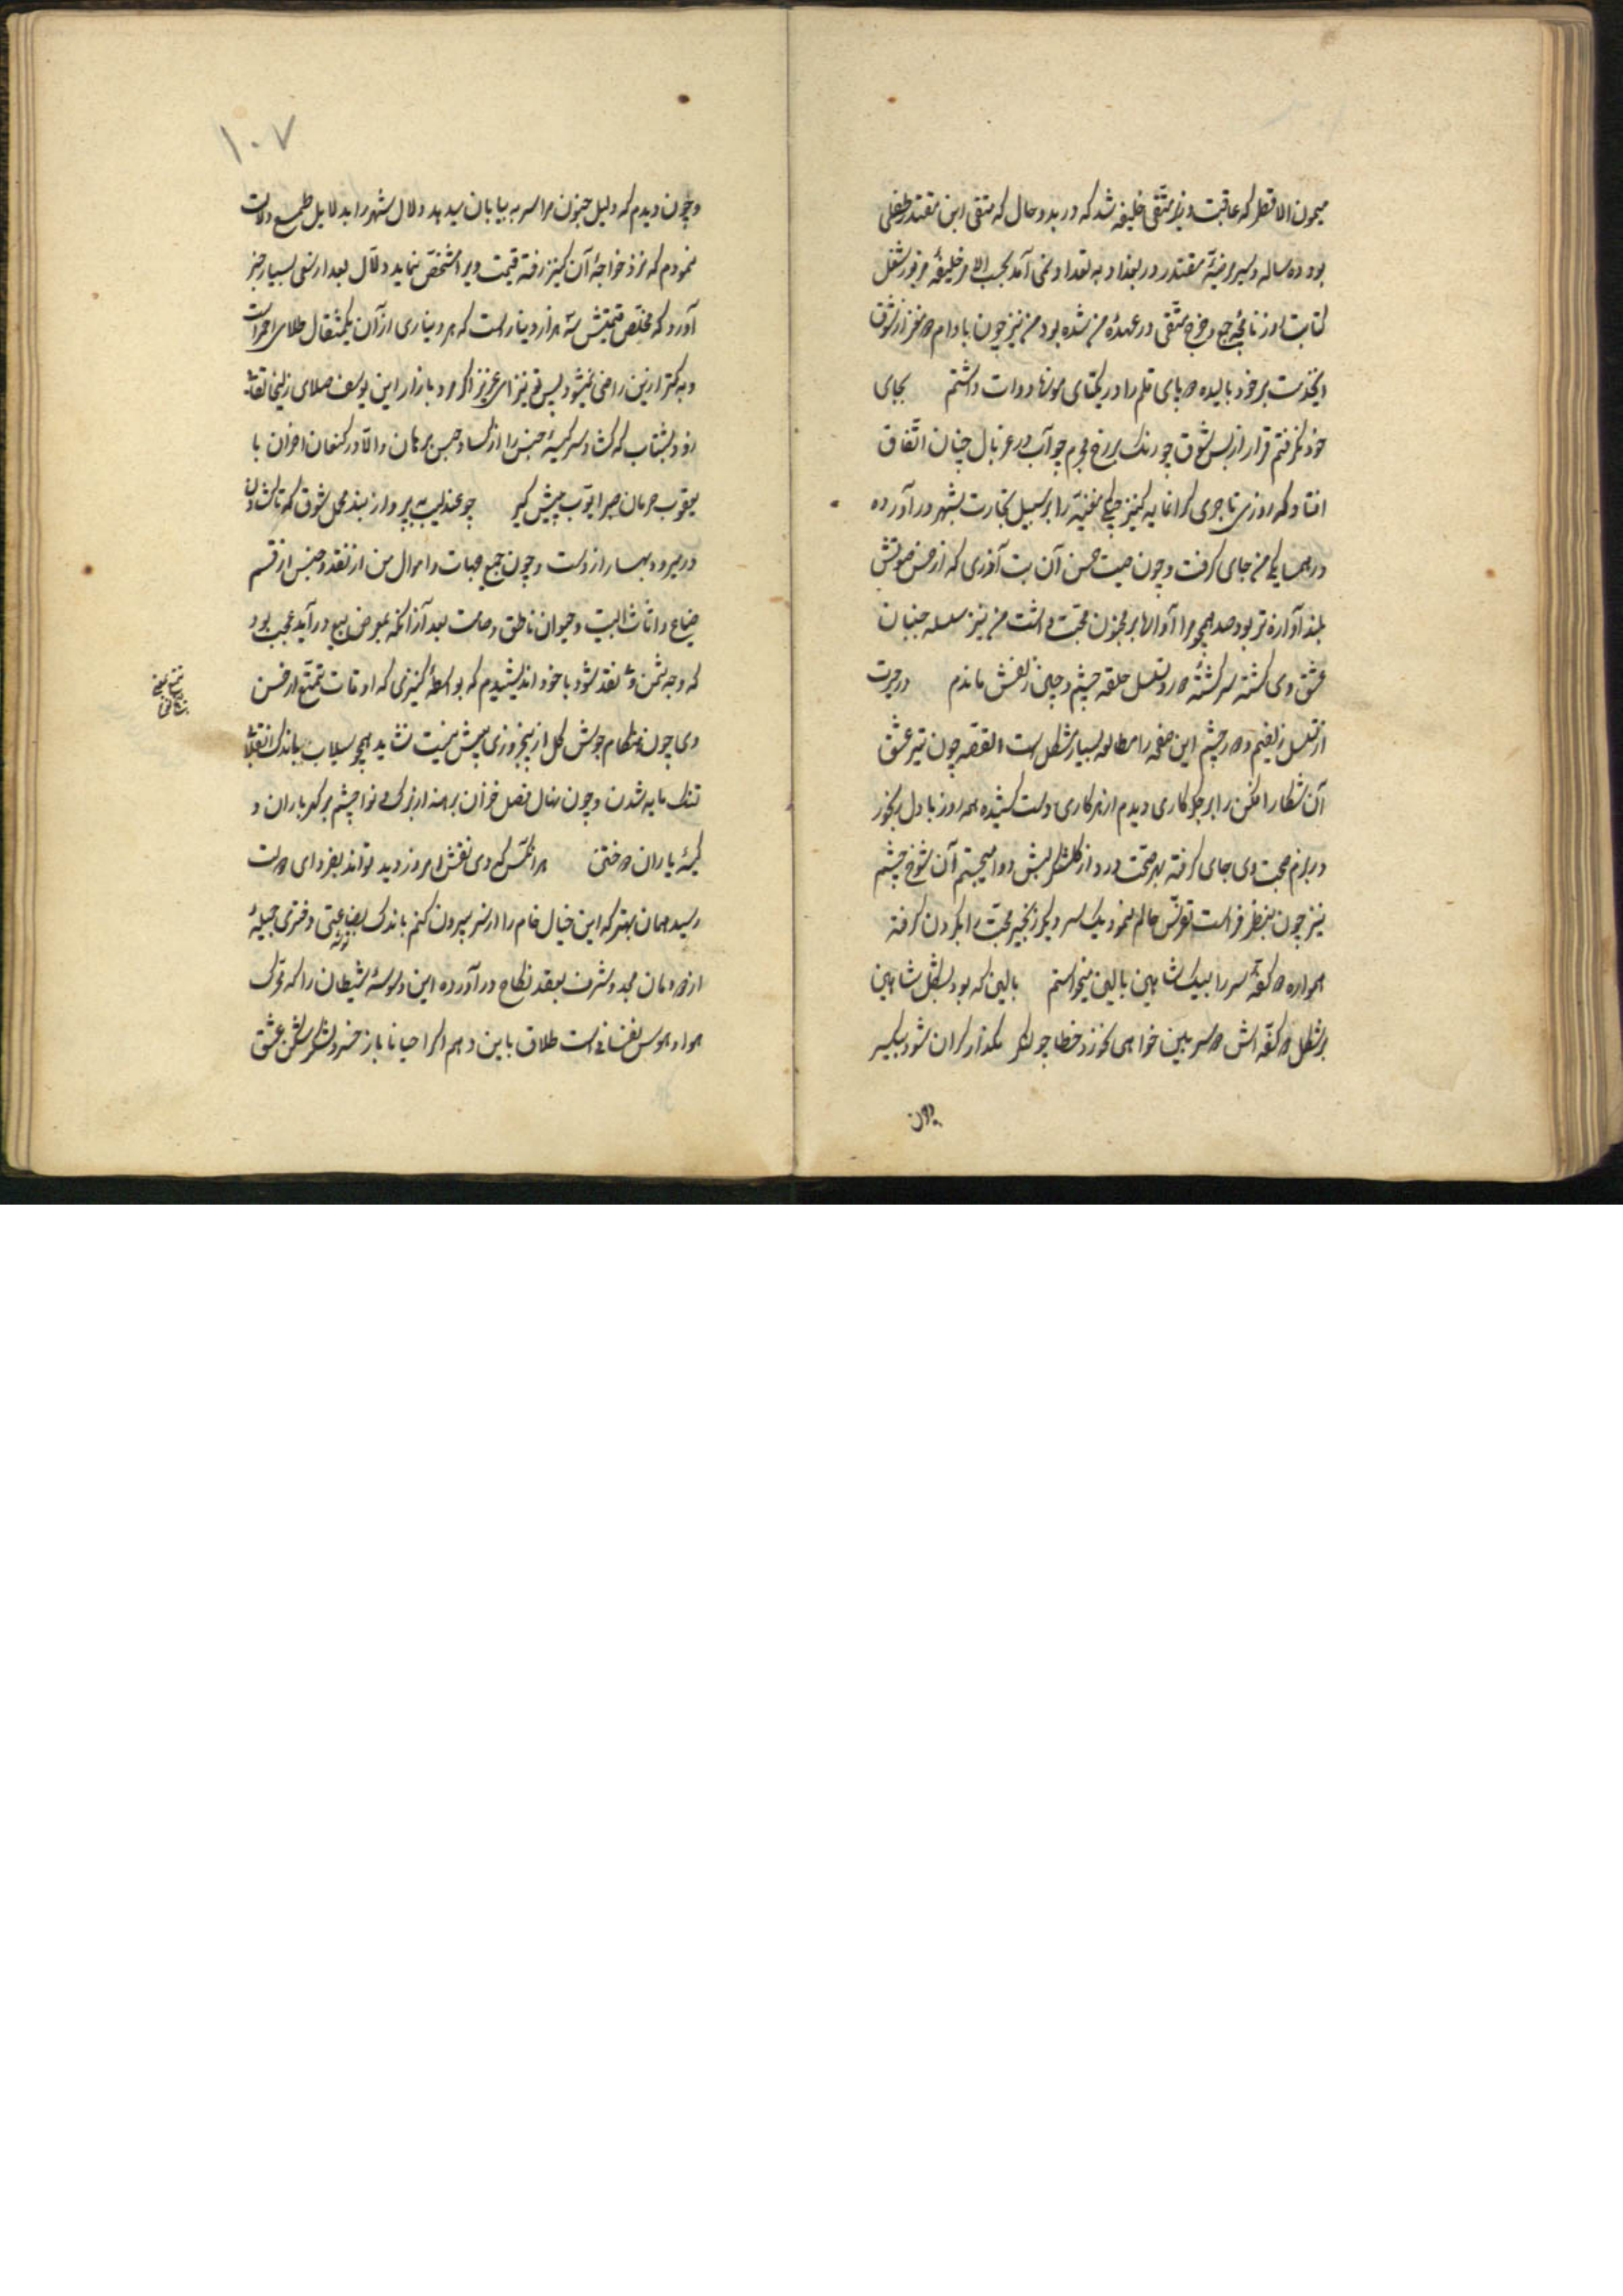 میمون الافطس که عاقبت وزیر متقی خلیفه شد که در بدو حال که متقی ابن مقتدر طفلی
بود ده ساله و سریر منیهٔ مقتدر در بغداد به تعداد نمی آمد بحسب الامر خلیفهٔ مزبور شغل
کتابت روزنامچهٔ جمع و خرج متقی در عهدهٔ من شده بود من نیز چون بادام دو مغز از شوق
اینخدمت بر خود بالیده دو پای قلم را در یکتای موزهای دوات داشتم بجای
خود نگرفتم قرار از بس شوق چو رنک بر رخ مجرم چو آب در غربال چنان اتّفاق
افتاد که روزی تاجری کرانمایه کنیز چنگی مغنیّه را بر سبیل تجارت بشهر در آورده
در همسایکی من جای کرفت و چون صیت حسن آن بت آذری که از حسن صوتش
بلند آوازه تر بود صد همچو مرا آوالها بر مجنون محبت داشت من نیز سلسله جنبان
عشق وی کشته سرکشتهٔ دور و تسلسل حلقه چشم و چین زلفش ماندم در حیرت
از تسلسل زلفیم و دور چشم این صفحه را مطالعه بسیار مشکل است القصه چون تیر عشق
آن شکار افکن را بر جکر کاری دیدم از هر کاری دست کشیده همه روز با دل رنجور
در بزم صحبت وی جای کرفته بهر صحت درد از کلشکر لبش دوا میجستم آن شوخ چشم
نیز چون بنظر فراست تفرّس حالم نمود یک سر دیکر زنجیر محبّت را بکردن کرفته
همواره دو کفّهٔ سر را بیک شاهین بالین میخواستم بالین که بود بشکل شاهین
بر شکل دو کفّه اش دو سر بین خواهی نخورد خطا چو لنکر مکذار کران شود سبکسر
چون
۱۰۷
و چون دیدم که دلیل جنون مرا سر به بیابان میدهد دلال شهر را بدلایل طمع دلالت
نمودم که نزد خواجهٔ آن کنیز رفته قیمت ویرا مشخّص نماید دلّال بعد از سعی بسیار خبر
آورد که مختصر قیمتش سه هزار دینار است که هر دیناری از آن یکمثقال طلای احمر است
و به کمتر ازین راضی نمیشود پس تو نیز ای عزیز اکر مرد بازار این یوسف صلای زلیخا تقاضا
زود بشتاب که کشاد سر کیسهٔ جنس را از کساد حسن برهان والّا در کنعان احزان با
یعقوب حرمان صبر ایّوب پیش کیر چو عندلیب بپرواز بند محمل شوق که تا کشادن
در میرود بهار از دست و چون جمیع جهات و اموال من از نقد و جنس از قسم
ضیاع و اثاث البیت و حیوان ناطق و صامت بعد از آنکه بمعرض بیع در آید عجب بود
که وجه ثمن وی نقد شود با خود اندیشیدم که بواسطهٔ کنیزی که اوقات تمتّع از حسن
وی چون هنکام جوشش کل از پنجروزی بیش نیست نشاید همچو سیلاب باندک انقلاب
تنک مایه شدن و چون نهال فصل خزان برهنه از برک و نوا چشم بر کهر باران و
کیسهٔ یاران دوختن هر انکس که وی نقش امروز دید تواند بفردای دولت
رسید همان بهتر که این خیال خام را از سر بیرون کنم باندک بضاعتی دختری جمیلهٔ
از دودمان مجد و شرف بعقد نکاح در آورده این وسوسهٔ شیطان را که محرّک
هوا و هوس نفسانی است طلاق باین دهم اکر احیانا باز خسرو لشکر شکن عشق